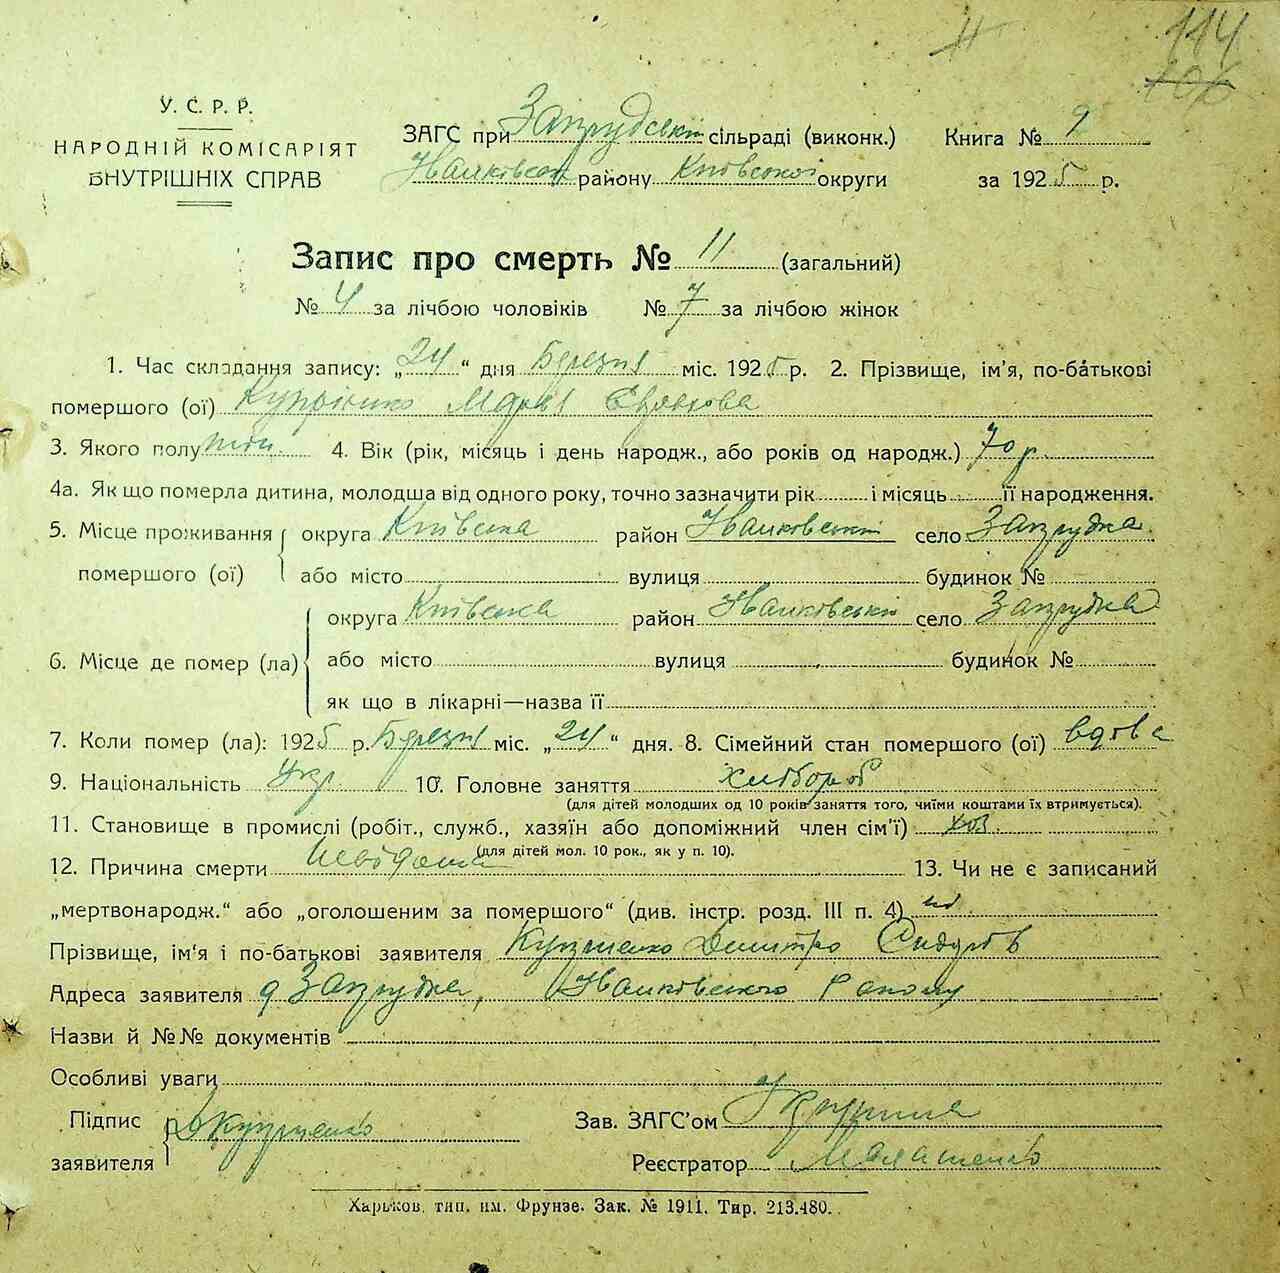 114
106
У. С. Р. Р.
НАРОДНІЙ КОМІСАРІЯТ
ВНУТРІШНІХ СПРАВ
ЗАГС при Запрудській сільраді (виконк.)
району Київської округи
Книга №
за 1925 р.
Запис про смерть № 11 (загальний)
№ 4 за лічбою чоловіків № 7 за лічбою жінок
1. Час складання запису: „24“ дня Березня міс. 1925 р. 2. Прізвище, ім'я, по-батькові
помершого (ої) Марія
3. Якого полу 4. Вік (рік, місяць і день народж., або років од народж.) 70 р.
4а. Як що померла дитина, молодша від одного року, точно зазначити рік і місяць її народження.
5. Місце проживання округа Київська район село Запрудка
помершого (ої) або місто вулиця будинок №
округа Київська район село Запрудка
6. Місце де помер (ла) або місто вулиця будинок №
як що в лікарні—назва її
7. Коли помер (ла): 1925 р. Березня міс. „24“ дня. 8. Сімейний стан помершого (ої) вдова
9. Національність Укр. 10. Головне заняття хлібороб
(для дітей молодших од 10 років заняття того, чиїми коштами їх втримується).
11. Становище в промислі (робіт., служб., хазяїн або допоміжний член сім'ї) хоз.
(для дітей мол. 10 рок., як у п. 10).
12. Причина смерти 13. Чи не є записаний
„мертвонародж.“ або „оголошеним за помершого“ (див. інстр. розд. III п. 4) ні
Прізвище, ім'я і по-батькові заявителя Дмитро Сидорів
Адреса заявителя Запрудка,
Назви й №№ документів
Особливі уваги
Підпис
заявителя
Зав. ЗАГС'ом
Реєстратор
Харьков. тип. им. Фрунзе. Зак. № 1911. Тир. 213.480.